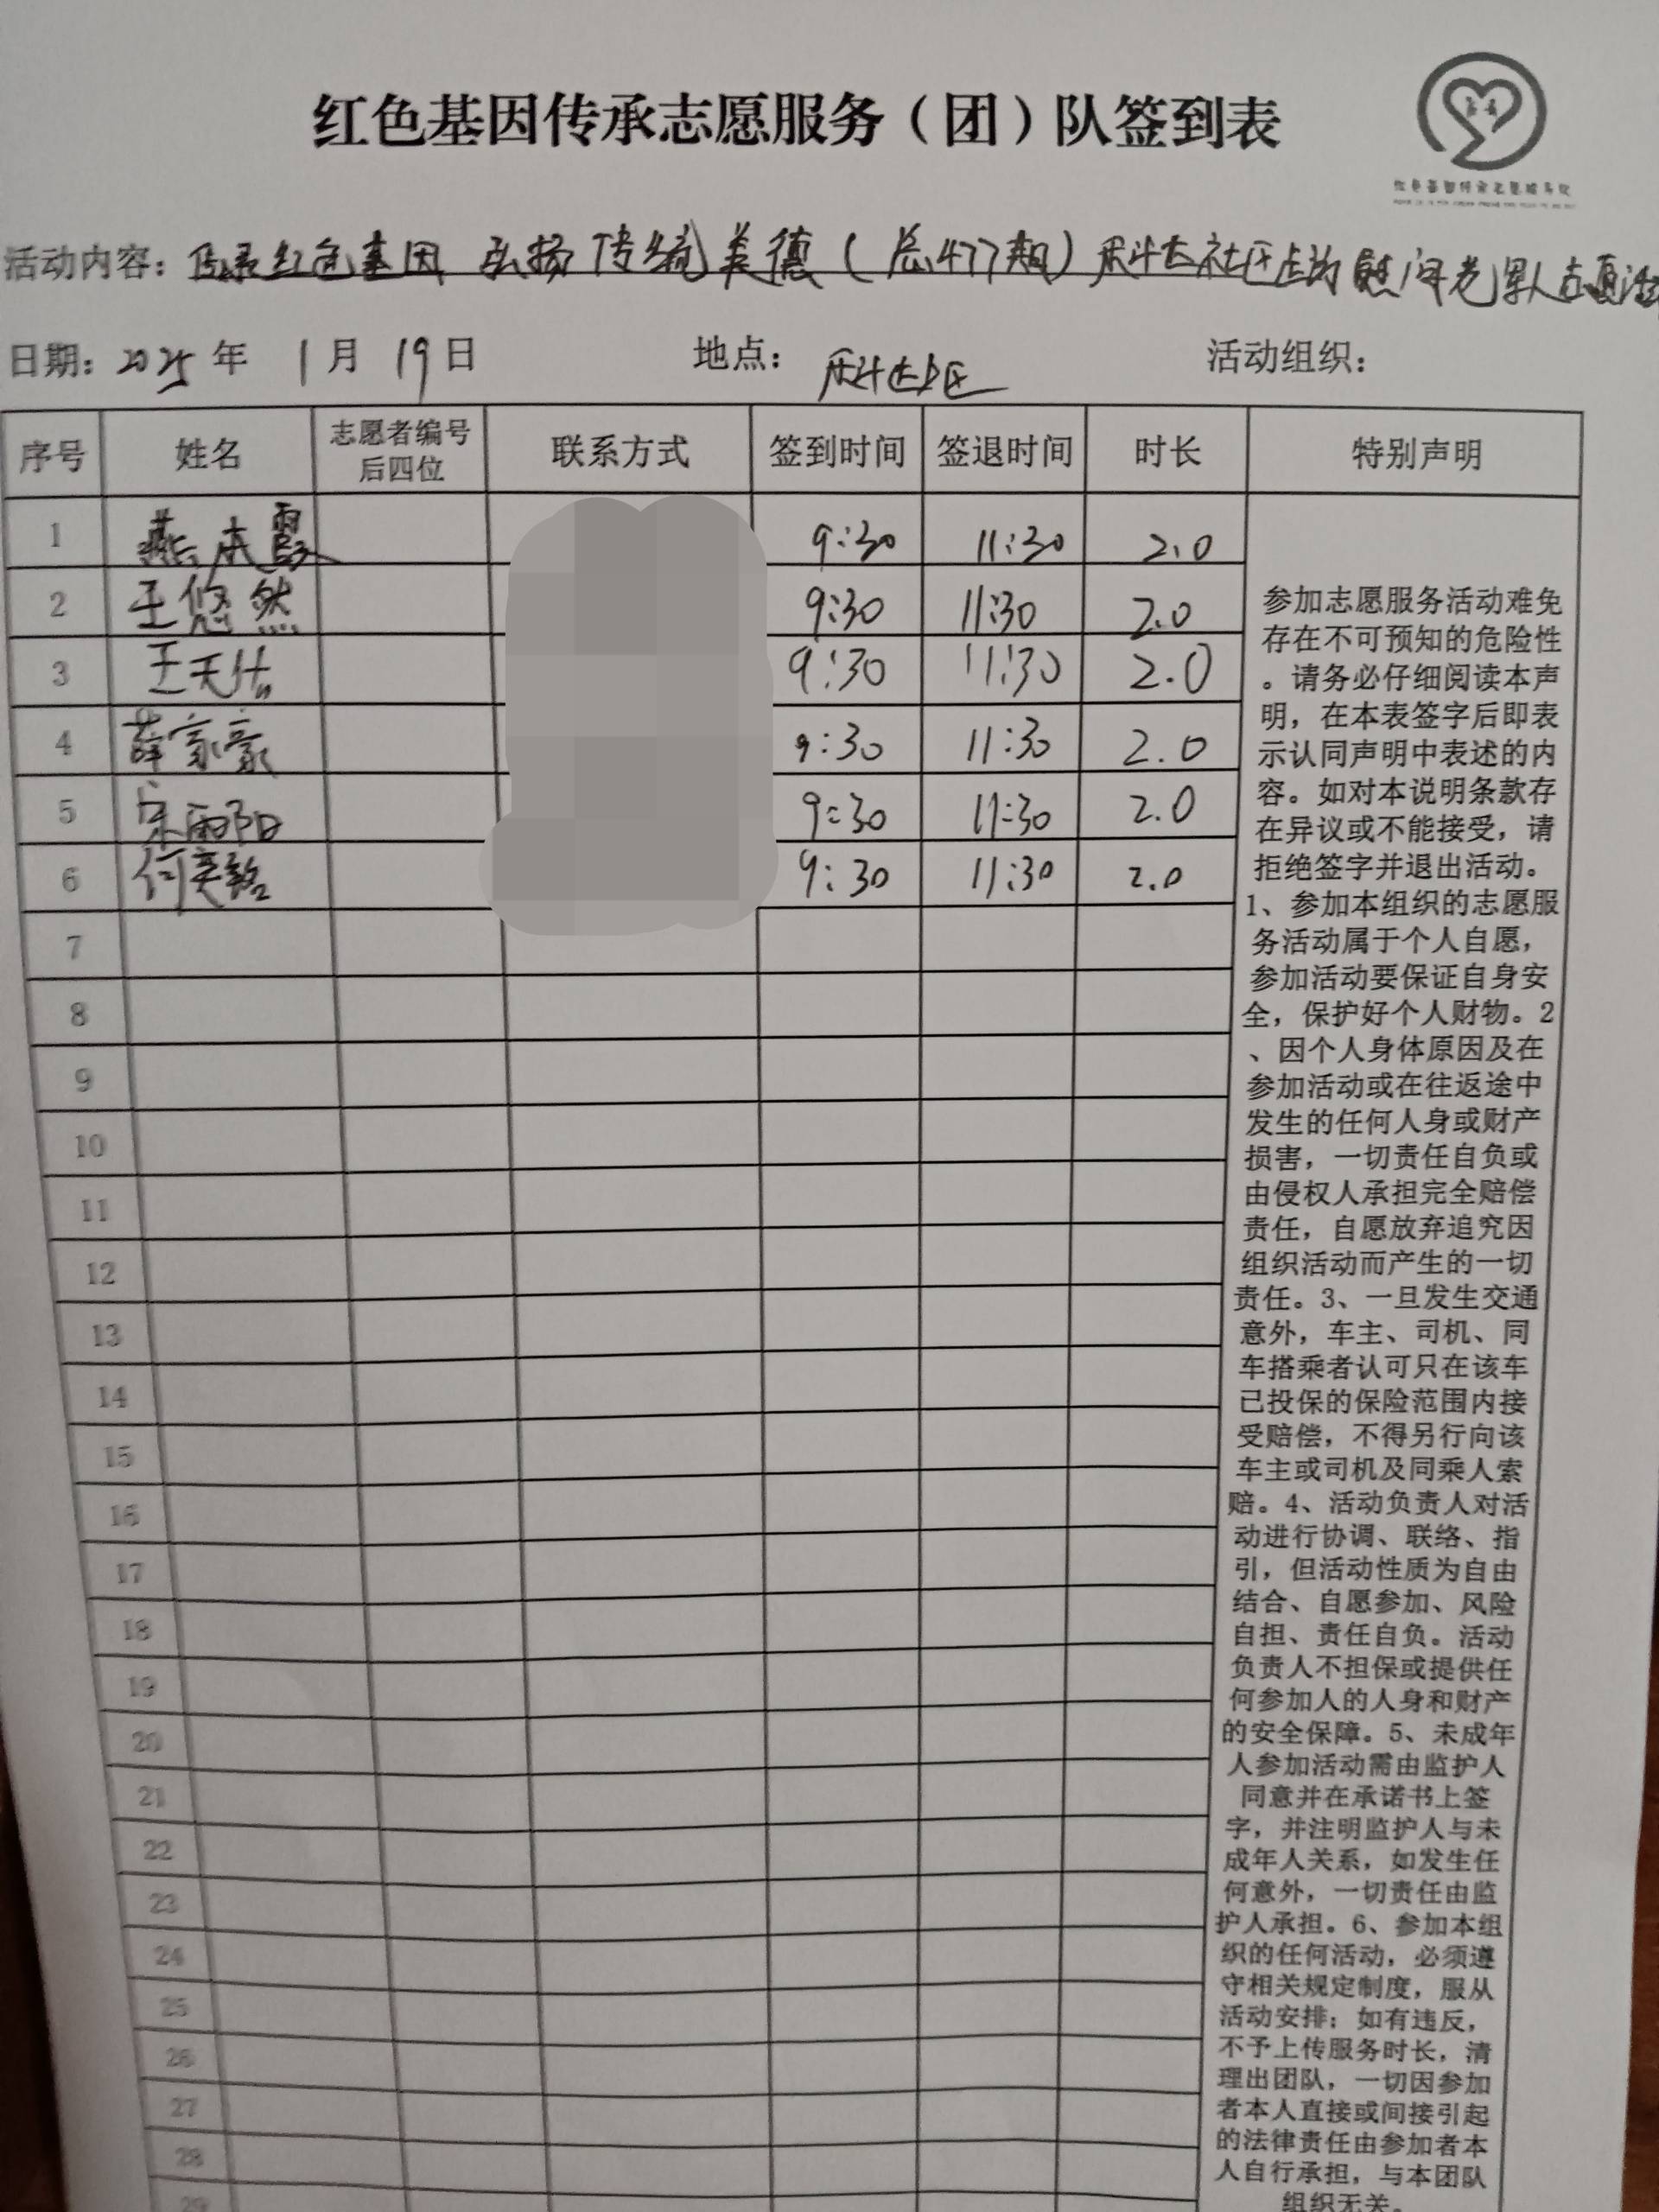 红色基因传承志愿服务（团）队签到表
活动内容：传承红色基因 弘扬传统美德（总477期）社区 慰问老军人志愿活
日期：2025年 1月 19日 地点： 活动组织：
序号 姓名 志愿者编号后四位 联系方式 签到时间 签退时间 时长 特别声明
1 燕本霞 9:30 11:30 2.0
2 王悠然 9:30 11:30 2.0
3 王天佑 9:30 11:30 2.0
4 薛家豪 9:30 11:30 2.0
5 宋雨阳 9:30 11:30 2.0
6 何奕铭 9:30 11:30 2.0
7
8
9
10
11
12
13
14
15
16
17
18
19
20
21
22
23
24
25
26
27
28
29
参加志愿服务活动难免
存在不可预知的危险性
。请务必仔细阅读本声
明，在本表签字后即表
示认同声明中表述的内
容。如对本说明条款存
在异议或不能接受，请
拒绝签字并退出活动。
1、参加本组织的志愿服
务活动属于个人自愿，
参加活动要保证自身安
全，保护好个人财物。2
、因个人身体原因及在
参加活动或在往返途中
发生的任何人身或财产
损害，一切责任自负或
由侵权人承担完全赔偿
责任，自愿放弃追究因
组织活动而产生的一切
责任。3、一旦发生交通
意外，车主、司机、同
车搭乘者认可只在该车
已投保的保险范围内接
受赔偿，不得另行向该
车主或司机及同乘人索
赔。4、活动负责人对活
动进行协调、联络、指
引，但活动性质为自由
结合、自愿参加、风险
自担、责任自负。活动
负责人不担保或提供任
何参加人的人身和财产
的安全保障。5、未成年
人参加活动需由监护人
同意并在承诺书上签
字，并注明监护人与未
成年人关系，如发生任
何意外，一切责任由监
护人承担。6、参加本组
织的任何活动，必须遵
守相关规定制度，服从
活动安排；如有违反，
不予上传服务时长，清
理出团队，一切因参加
者本人直接或间接引起
的法律责任由参加者本
人自行承担，与本团队
组织无关。